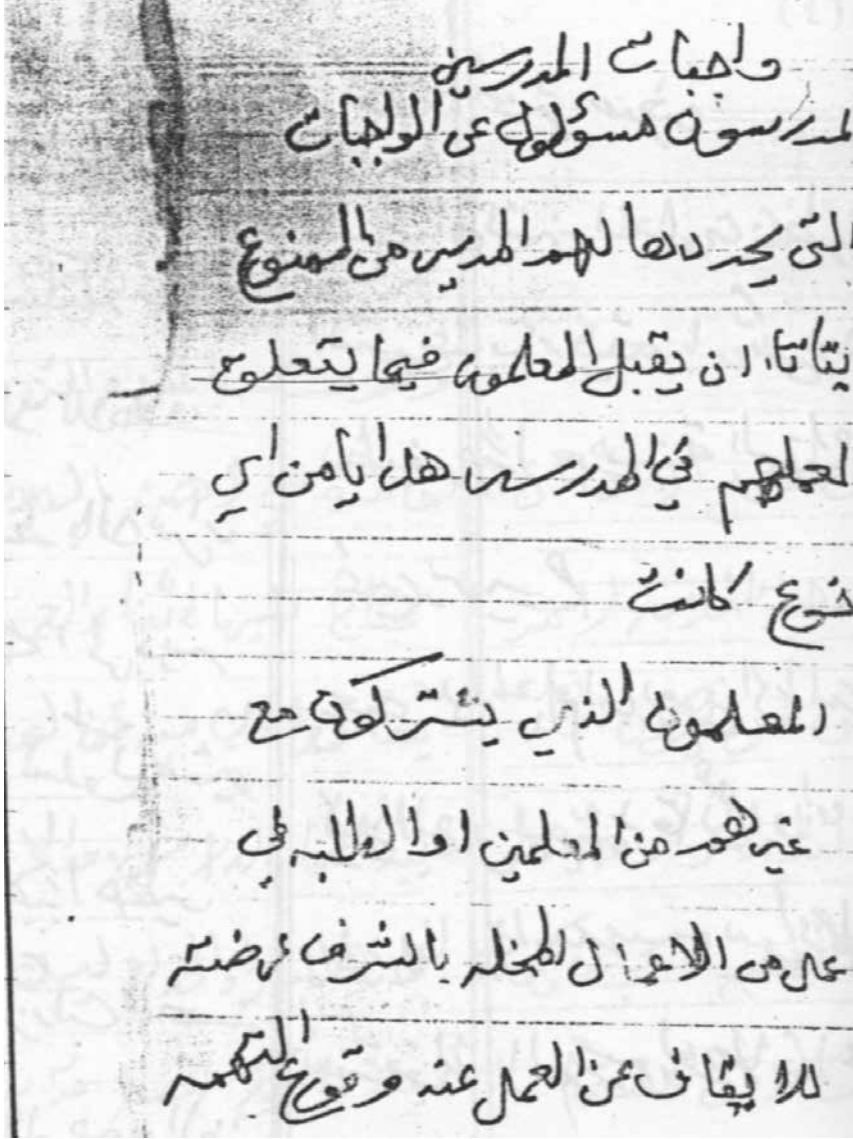 واجبات المدرسين
المدرسون مسؤولون عن الواجبات
التي يحددها لهم المدير من الممنوع
بتاتا ان يقبل المعلمون فيما يتعلق
لعملهم في المدرسه هدايا من اي
نوع كانت
المعلمون الذي يشتركون مع
غيرهم من المعلمين او الطلبه في
عمل من الاعمال المخله بالشرف عرضته
للايقاف عن العمل عند وقوع التهمه